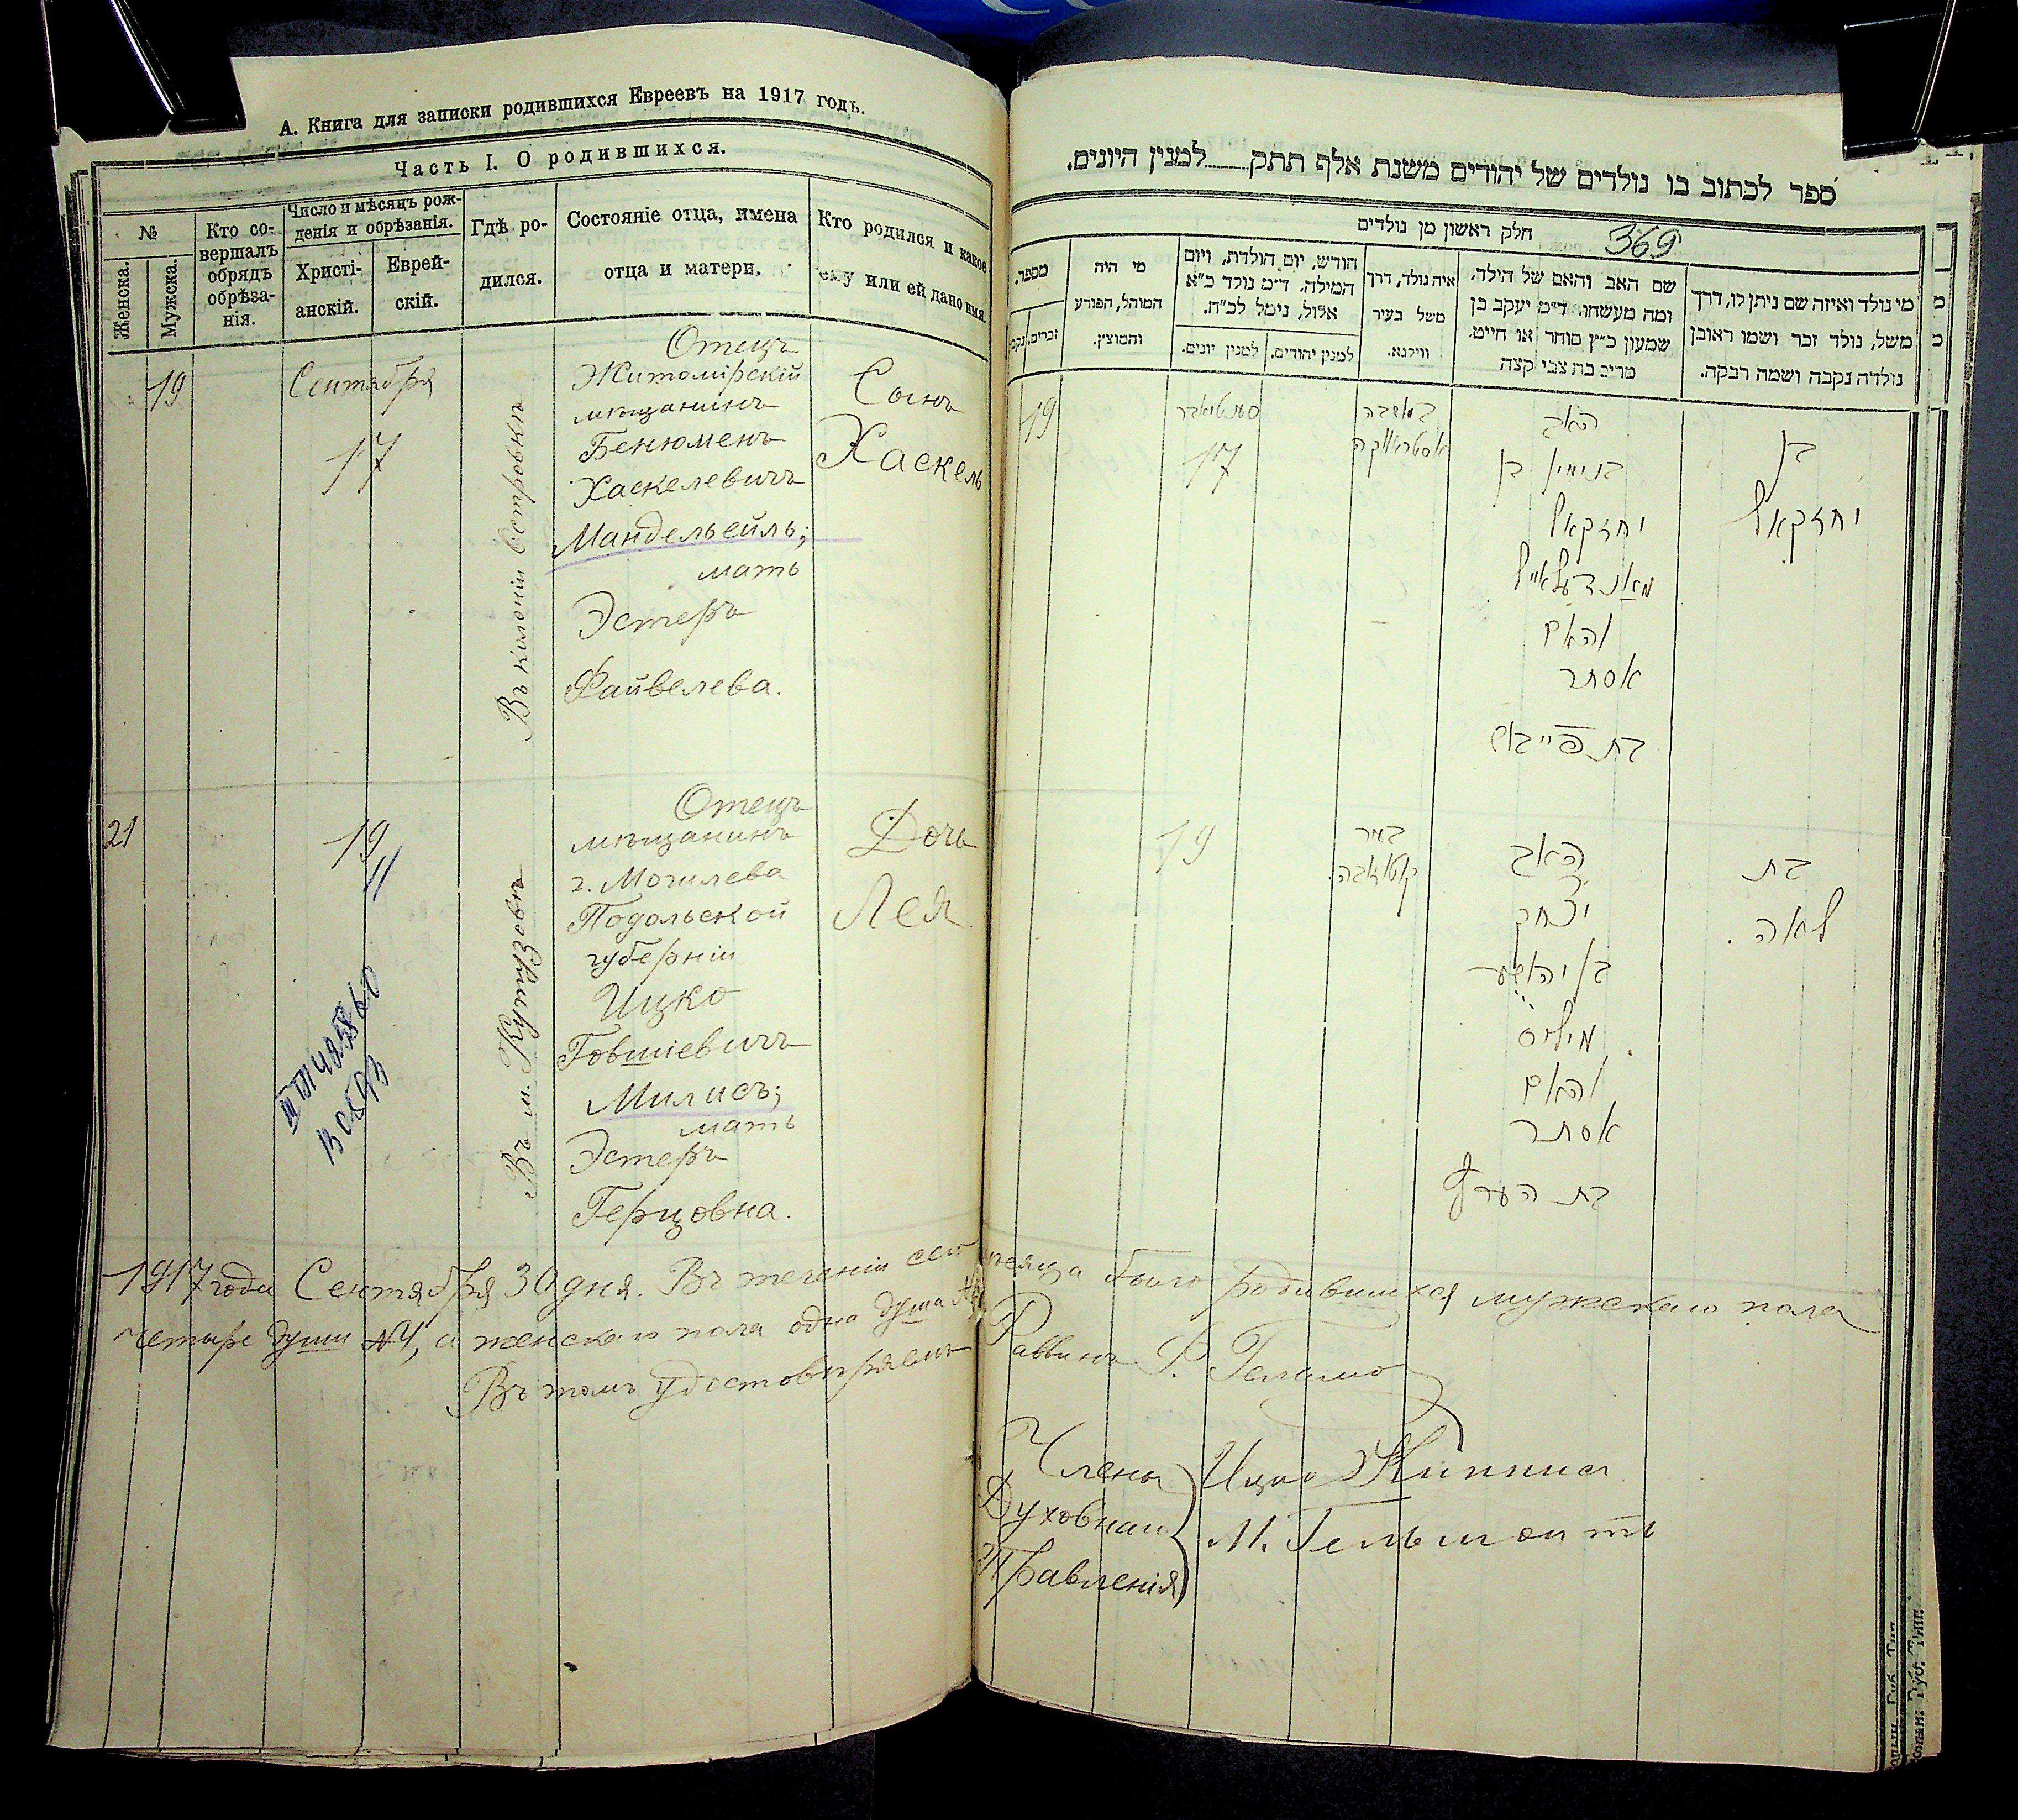 А. Книга для записки родившихся Евреевъ на 1917 годъ.
Часть I. О родившихся.
№
Женска.
Мужска.
Кто со-
вершалъ
обрядъ
обрѣза-
нія.
Число и мѣсяцъ рож-
денія и обрѣзанія.
Христі-
анскій.
Еврей-
скій.
Гдѣ ро-
дился.
Состояніе отца, имена
отца и матери.
Кто родился и какое
ему или ей дано имя.
19
Сентября
17
Въ колоніи Островкѣ
Отецъ
Житомірскій
мѣщанинъ
Бенюменъ
Хаскелевичъ
Мандельейль;
мать
Эстеръ
Файвелева.
Сынъ
Хаскель
21
19
Въ м. Кутузовѣ
Отецъ
мѣщанинъ
г. Могилева
Подольской
губерніи
Ицко
Говшіевичъ
Милисъ;
мать
Эстеръ
Герцовна.
Дочь
Лея
1917 года Сентября 30 дня. Въ теченіи сего мѣсяца было родившихся мужскаго пола
четыре души №4, а женскаго пола одна душа №1
Въ томъ удостовѣряемъ Раввинъ
Члены
Духовнаго
Правленія
Ицко
М. Гельшонтъ
ספר לכתוב בו נולדים של יהודים משנת אלף תתק למנין היונים.
חלק ראשון מן נולדים
369
מי נולד ואיזה שם ניתן לו, דרך
משל, נולד זכר ושמו ראובן
נולדה נקבה ושמה רבקה.
שם האב והאם של הילד,
ומה מעשהו, ד״מ יעקב בן
שמעון כ״ץ סוחר או חייט,
מרים בת צבי קצה
איה נולד, דרך
משל בעיר
ווילנא.
חודש, יום הולדת, ויום
המילה, ד״מ נולד כ״א
אלול, נימל לכ״ח.
למנין יהודים.
למנין יונים.
מי היה
המוהל, הפורע
והמוצץ.
מספר.
זכרים.
19
סענטיאבר
17
במושבה
אסטראווקה
האב
בנימין בן
יחזקאל
מאנדעלאייל
והאם
אסתר
בת פייבוש
בן
יחזקאל
19
בעיר
קוטוזאבה.
האב
יצחק
בן יהושע
מיליס
והאם
אסתר
בת הערץ
בת
לאה.